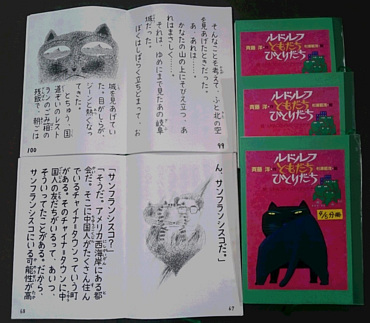 そんなことを考えて、ふと北の空
を見あげたときだった。
あ、あれは……。
かなたの山の上にそびえ立つ、あ
れはまさしく……。
それは、ゆめにまで見たあの岐阜
城だった。
ぼくはしばらく立ちどまって、お
99
城を見あげてい
た。目がしらが、
ジーンと熱くなっ
てきた。
とちゅう、国
道ぞいのレスト
ランのごみ箱の
残飯で、朝ごは
100
ん、サンフランシスコだ。」
67
「サンフランシスコ？」
「そうだ。アメリカ西海岸にある都
会だ。そこに中国人がたくさん住ん
でいるチャイナータウンっていう町
がある。そのチャイナータウンに中
国人の友だちがいるって、あいつ、
そういってたことがある。だから、
サンフランシスコにいる可能性が高
68
ルドルフ
ともだち
ひとりだち
斉藤 洋・作
杉浦範茂・絵
ルドルフ
ともだち
ひとりだち
斉藤 洋・作
杉浦範茂・絵
ルドルフ
ともだち
ひとりだち
斉藤 洋・作
杉浦範茂・絵